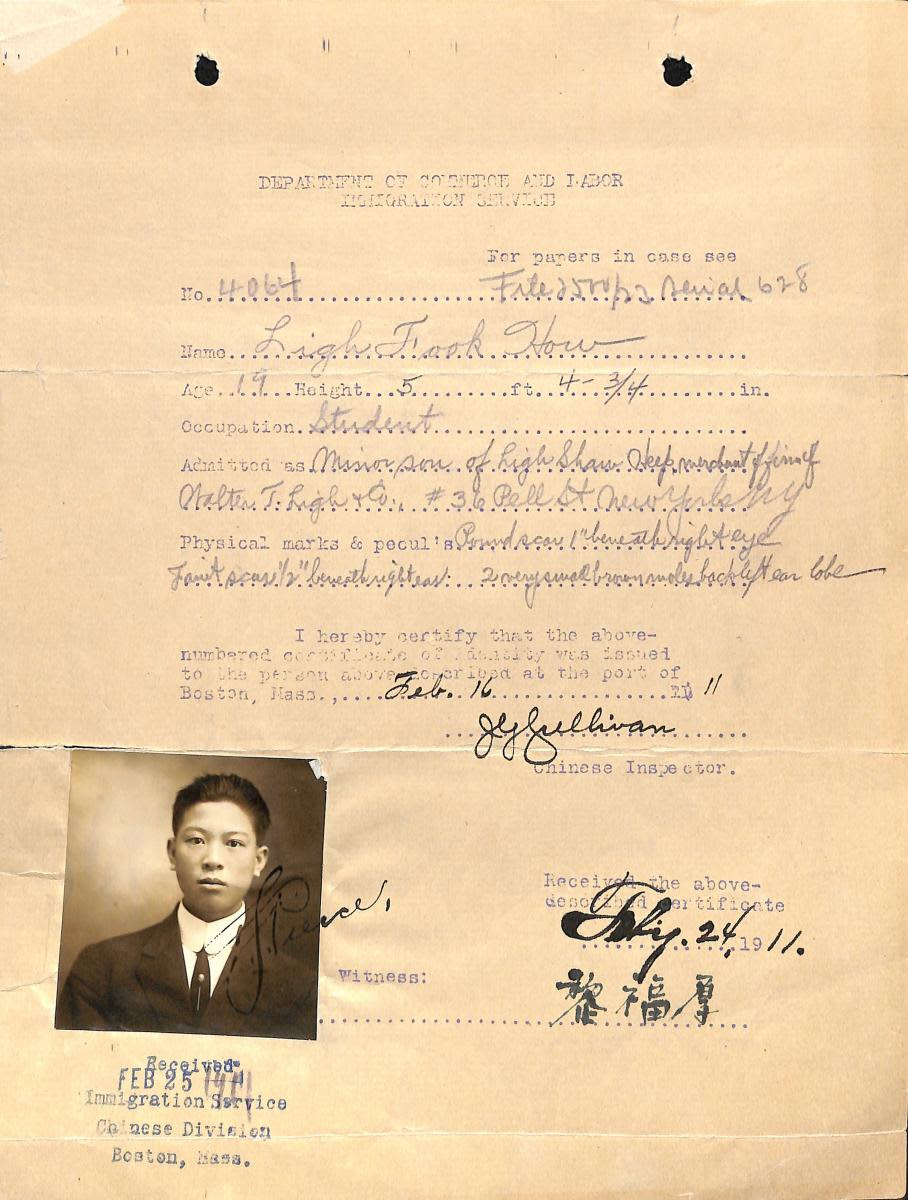 DEPARTMENT OF COMMERCE AND LABOR
IMMIGRATION SERVICE
For papers in case see
No. 4064 File 2500/22 Serial 628
Name Ligh Fook How
Age 19 Height 5 ft 4-3/4 in.
Occupation Student
Admitted as Minor son of Ligh Shaw Keep merchant of firm of
Walter T. Ligh & Co., #36 Pell St New York NY
Physical marks & pecul's scar 1" beneath right eye
Faint scar 1/2" beneath right ear. 2 very small brown moles back left ear lobe
I hereby certify that the above-
numbered certificate of identity was issued
to the person above described at the port of
Boston, Mass., Feb. 16 11
Sullivan
Chinese Inspector.
Pierce,
Received the above-
described certificate
24, 1911.
Witness:
黎福厚
Received
FEB 25 1911
Immigration Service
Chinese Division
Boston, Mass.